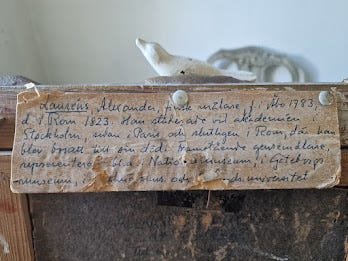 Lauréus, Alexander, finsk målare, f. i Åbo 1783,
d. i Rom 1823. Han studerade vid akademien i
Stockholm, sedan i Paris och slutligen i Rom, där han
blev bosatt till sin död. Framstående genremålare,
representerad bl.a. i Nationalmuseum, i Göteborgs
museum, i mus. och universitet